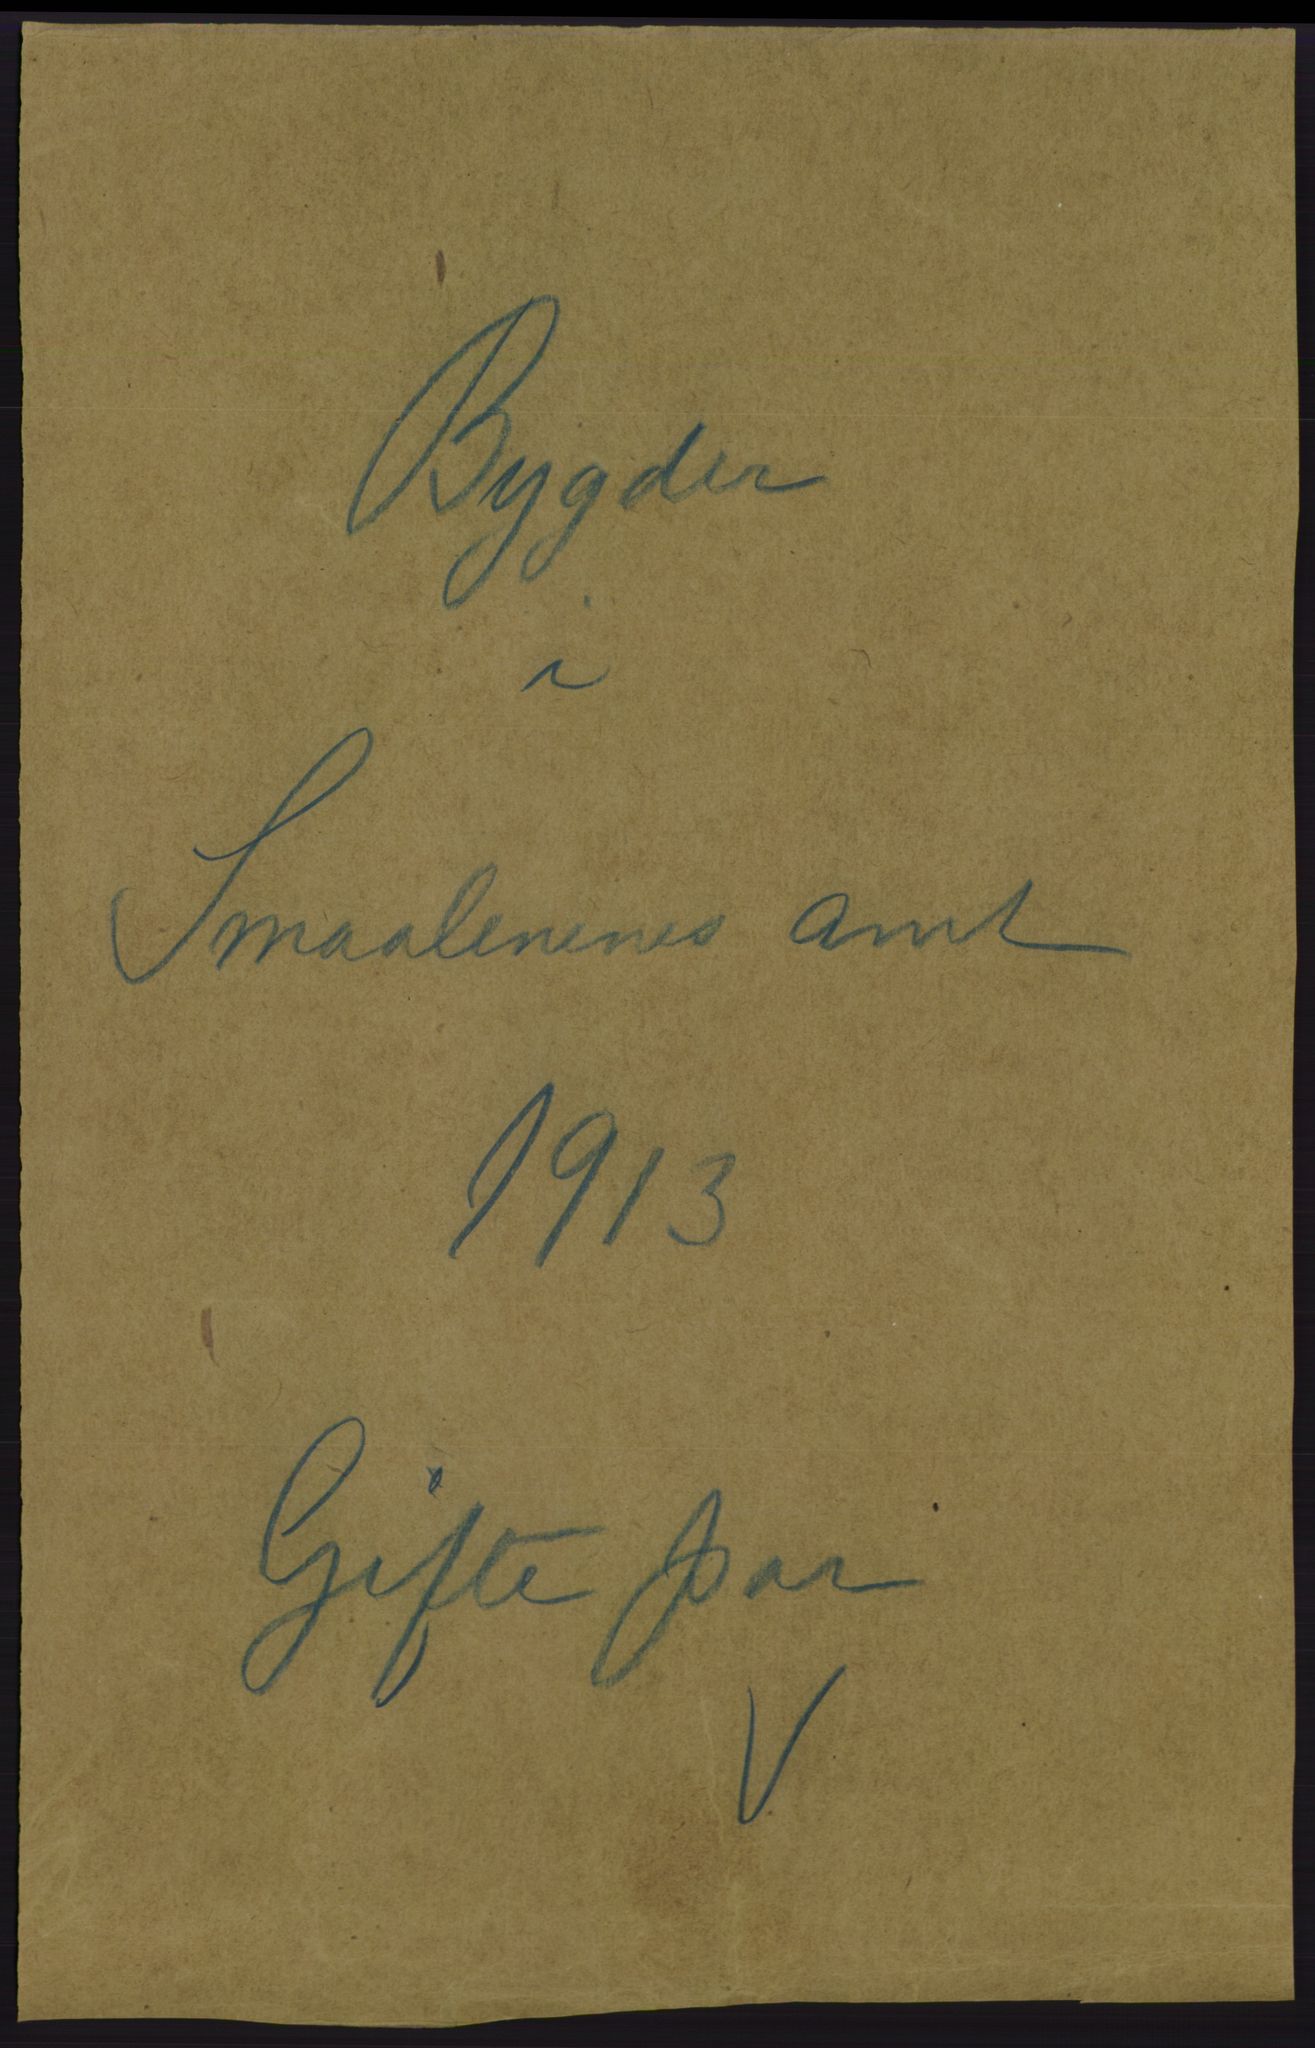 Bygder
i
Smaalenenes amt
1913
Gifte par
V